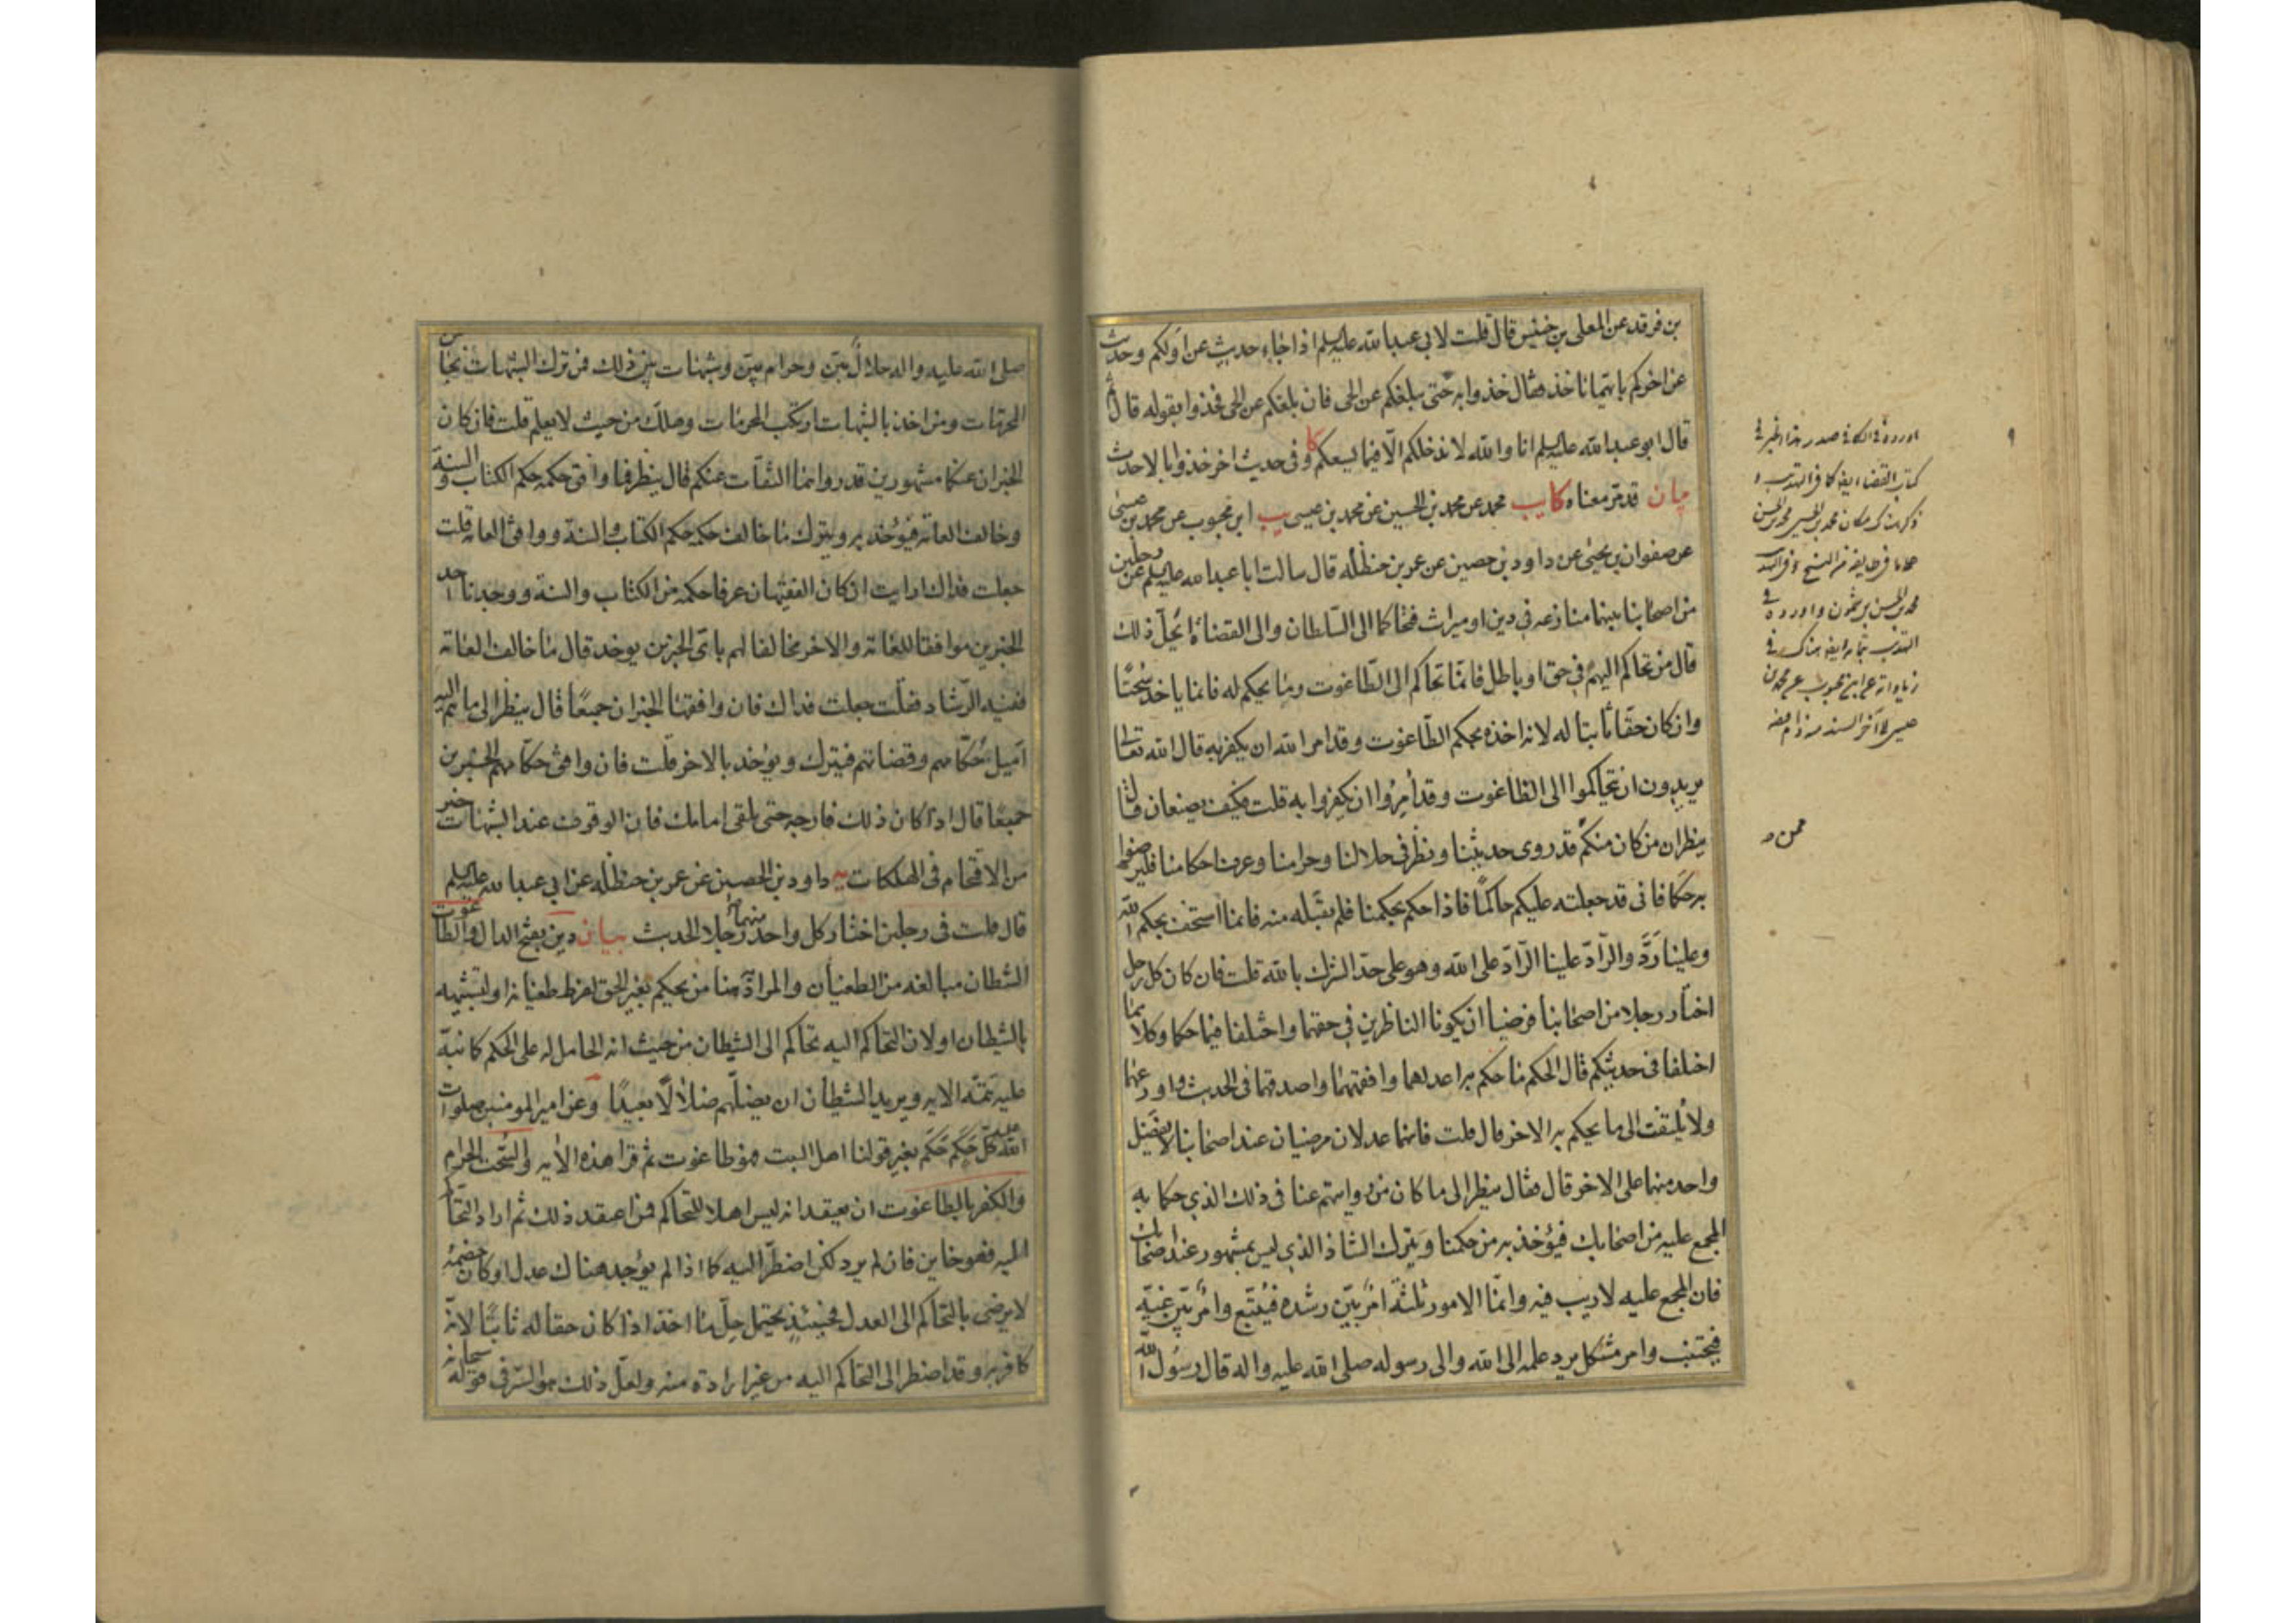 بن فرقد عن المعلى بن خنيس قال قلت لابى عبد الله عليه السلم اذا جاء حديث عن اولكم وحديث
عن اخركم بايهما ناخذ فقال خذوا به حتى يبلغكم عن الحى فان بلغكم عن الحى فخذوا بقوله قال ثم
قال ابو عبد الله عليه السلم انا والله لا ندخلكم الا فيما يسعكم كا وفى حديث اخر خذوا بالاحدث
بيان قد مر معناه كا يب محمد عن محمد بن الحسين عن محمد بن عيسى يب ابن محبوب عن محمد بن عيسى
عن صفوان بن يحيى عن داود بن حصين عن عمر بن حنظلة قال سالت ابا عبد الله عليه السلم عن رجلين
من اصحابنا بينهما منازعه فى دين او ميراث فتحاكما الى السلطان والى القضاة ايحل ذلك
قال من تحاكم اليهم فى حق او باطل فانما تحاكم الى الطاغوت وما يحكم له فانما ياخذ سحتا
وان كان حقا ثابتا له لانه اخذه بحكم الطاغوت وقد امر الله ان يكفر به قال الله تعالى
يريدون ان يتحاكموا الى الطاغوت وقد أمروا ان يكفروا به قلت فكيف يصنعان قال
ينظران من كان منكم قد روى حديثنا ونظر فى حلالنا وحرامنا وعرف احكامنا فليرضوا
به حكما فانى قد جعلته عليكم حاكما فاذا حكم بحكمنا فلم يقبله منه فانما استخف بحكم الله
وعلينا رد والراد علينا الراد على الله وهو على حد الشرك بالله قلت فان كان كل رجل
اختار رجلا من اصحابنا فرضيا ان يكونا الناظرين فى حقهما واختلفا فيما حكما وكلاهما
اختلفا فى حديثكم قال الحكم ما حكم به اعدلهما وافقههما واصدقهما فى الحديث واورعهما
ولا يلتفت الى ما يحكم به الاخر قال قلت فانهما عدلان مرضيان عند اصحابنا لا يفضل
واحد منهما على الاخر قال فقال ينظر الى ما كان من روايتهم عنا فى ذلك الذى حكما به
المجمع عليه من اصحابك فيؤخذ به من حكمنا ويترك الشاذ الذى ليس بمشهور عند اصحابك
فان المجمع عليه لا ريب فيه وانما الامور ثلثة امر بين رشده فيتبع وامر بين غيه
فيجتنب وامر مشكل يرد علمه الى الله والى رسوله صلى الله عليه واله قال رسول الله
اورده فى الكافى صدر هذا الخبر فى
كتاب القضاء ايضا كما فى التهذيب و
محمد بن الحسن بن شمون واورده فى
التهذيب بتمامه ايضا هناك فى
زياداته عن ابن محبوب عن محمد بن
عيسى الى آخر السند منه دام فيضه
ممن
صلى الله عليه واله حلال بين وحرام بين وشبهات بين ذلك فمن ترك الشبهات نجا من
المحرمات ومن اخذ بالشبهات ارتكب المحرمات وهلك من حيث لا يعلم قلت فان كان
الخبران عنكما مشهورين قد رواهما الثقات عنكم قال ينظر فما وافق حكمه حكم الكتاب والسنة
وخالف العامة فيؤخذ به ويترك ما خالف حكمه حكم الكتاب والسنة ووافق العامة قلت
جعلت فداك ارايت ان كان الفقيهان عرفا حكمه من الكتاب والسنة ووجدنا احد
الخبرين موافقا للعامة والاخر مخالفا لهم باى الخبرين يوخذ قال ما خالف العامة
ففيه الرشاد فقلت جعلت فداك فان وافقهما الخبران جميعا قال ينظر الى ما هم اليه
اميل حكامهم وقضاتهم فيترك ويؤخذ بالاخر قلت فان وافق حكامهم الخبرين
جميعا قال اذا كان ذلك فارجه حتى تلقى امامك فان الوقوف عند الشبهات خير
من الاقتحام فى الهلكات يه داود بن الحصين عن عمر بن حنظلة عن ابى عبد الله عليه السلم
قال قلت فى رجلين اختار كل واحد منهما رجلا الحديث بيان دين بفتح الدال والطاغوت
الشطان مبالغه من الطغيان والمراد هنا من يحكم بغير الحق لفرط طغيانه او لتشبيهه
بالشيطان او لان التحاكم اليه تحاكم الى الشيطان من حيث انه الحامل له على الحكم كما نبه
عليه تتمة الايه ويريد الشيطان ان يضلهم ضلالا بعيدا وعن امير المومنين صلوات
الله عليه كل حكم حكم بغير قولنا اهل البيت فهو طاغوت ثم قرا هذه الايه والسحت الحرام
والكفر بالطاغوت ان يعتقد انه ليس اهلا للتحاكم فمن اعتقد ذلك ثم اراد التحاكم
اليه فهو خاين فان لم يرد لكن اضطر اليه كما اذا لم يوجد هناك عدل او كان خصمه
لا يرضى بالتحاكم الى العدل فحينئذ يحتمل حل ما اخذ اذا كان حقا له ثابتا لانه
كافر به وقد اضطر الى التحاكم اليه من غير ارادة منه ولعل ذلك هو السر فى قوله سبحانه